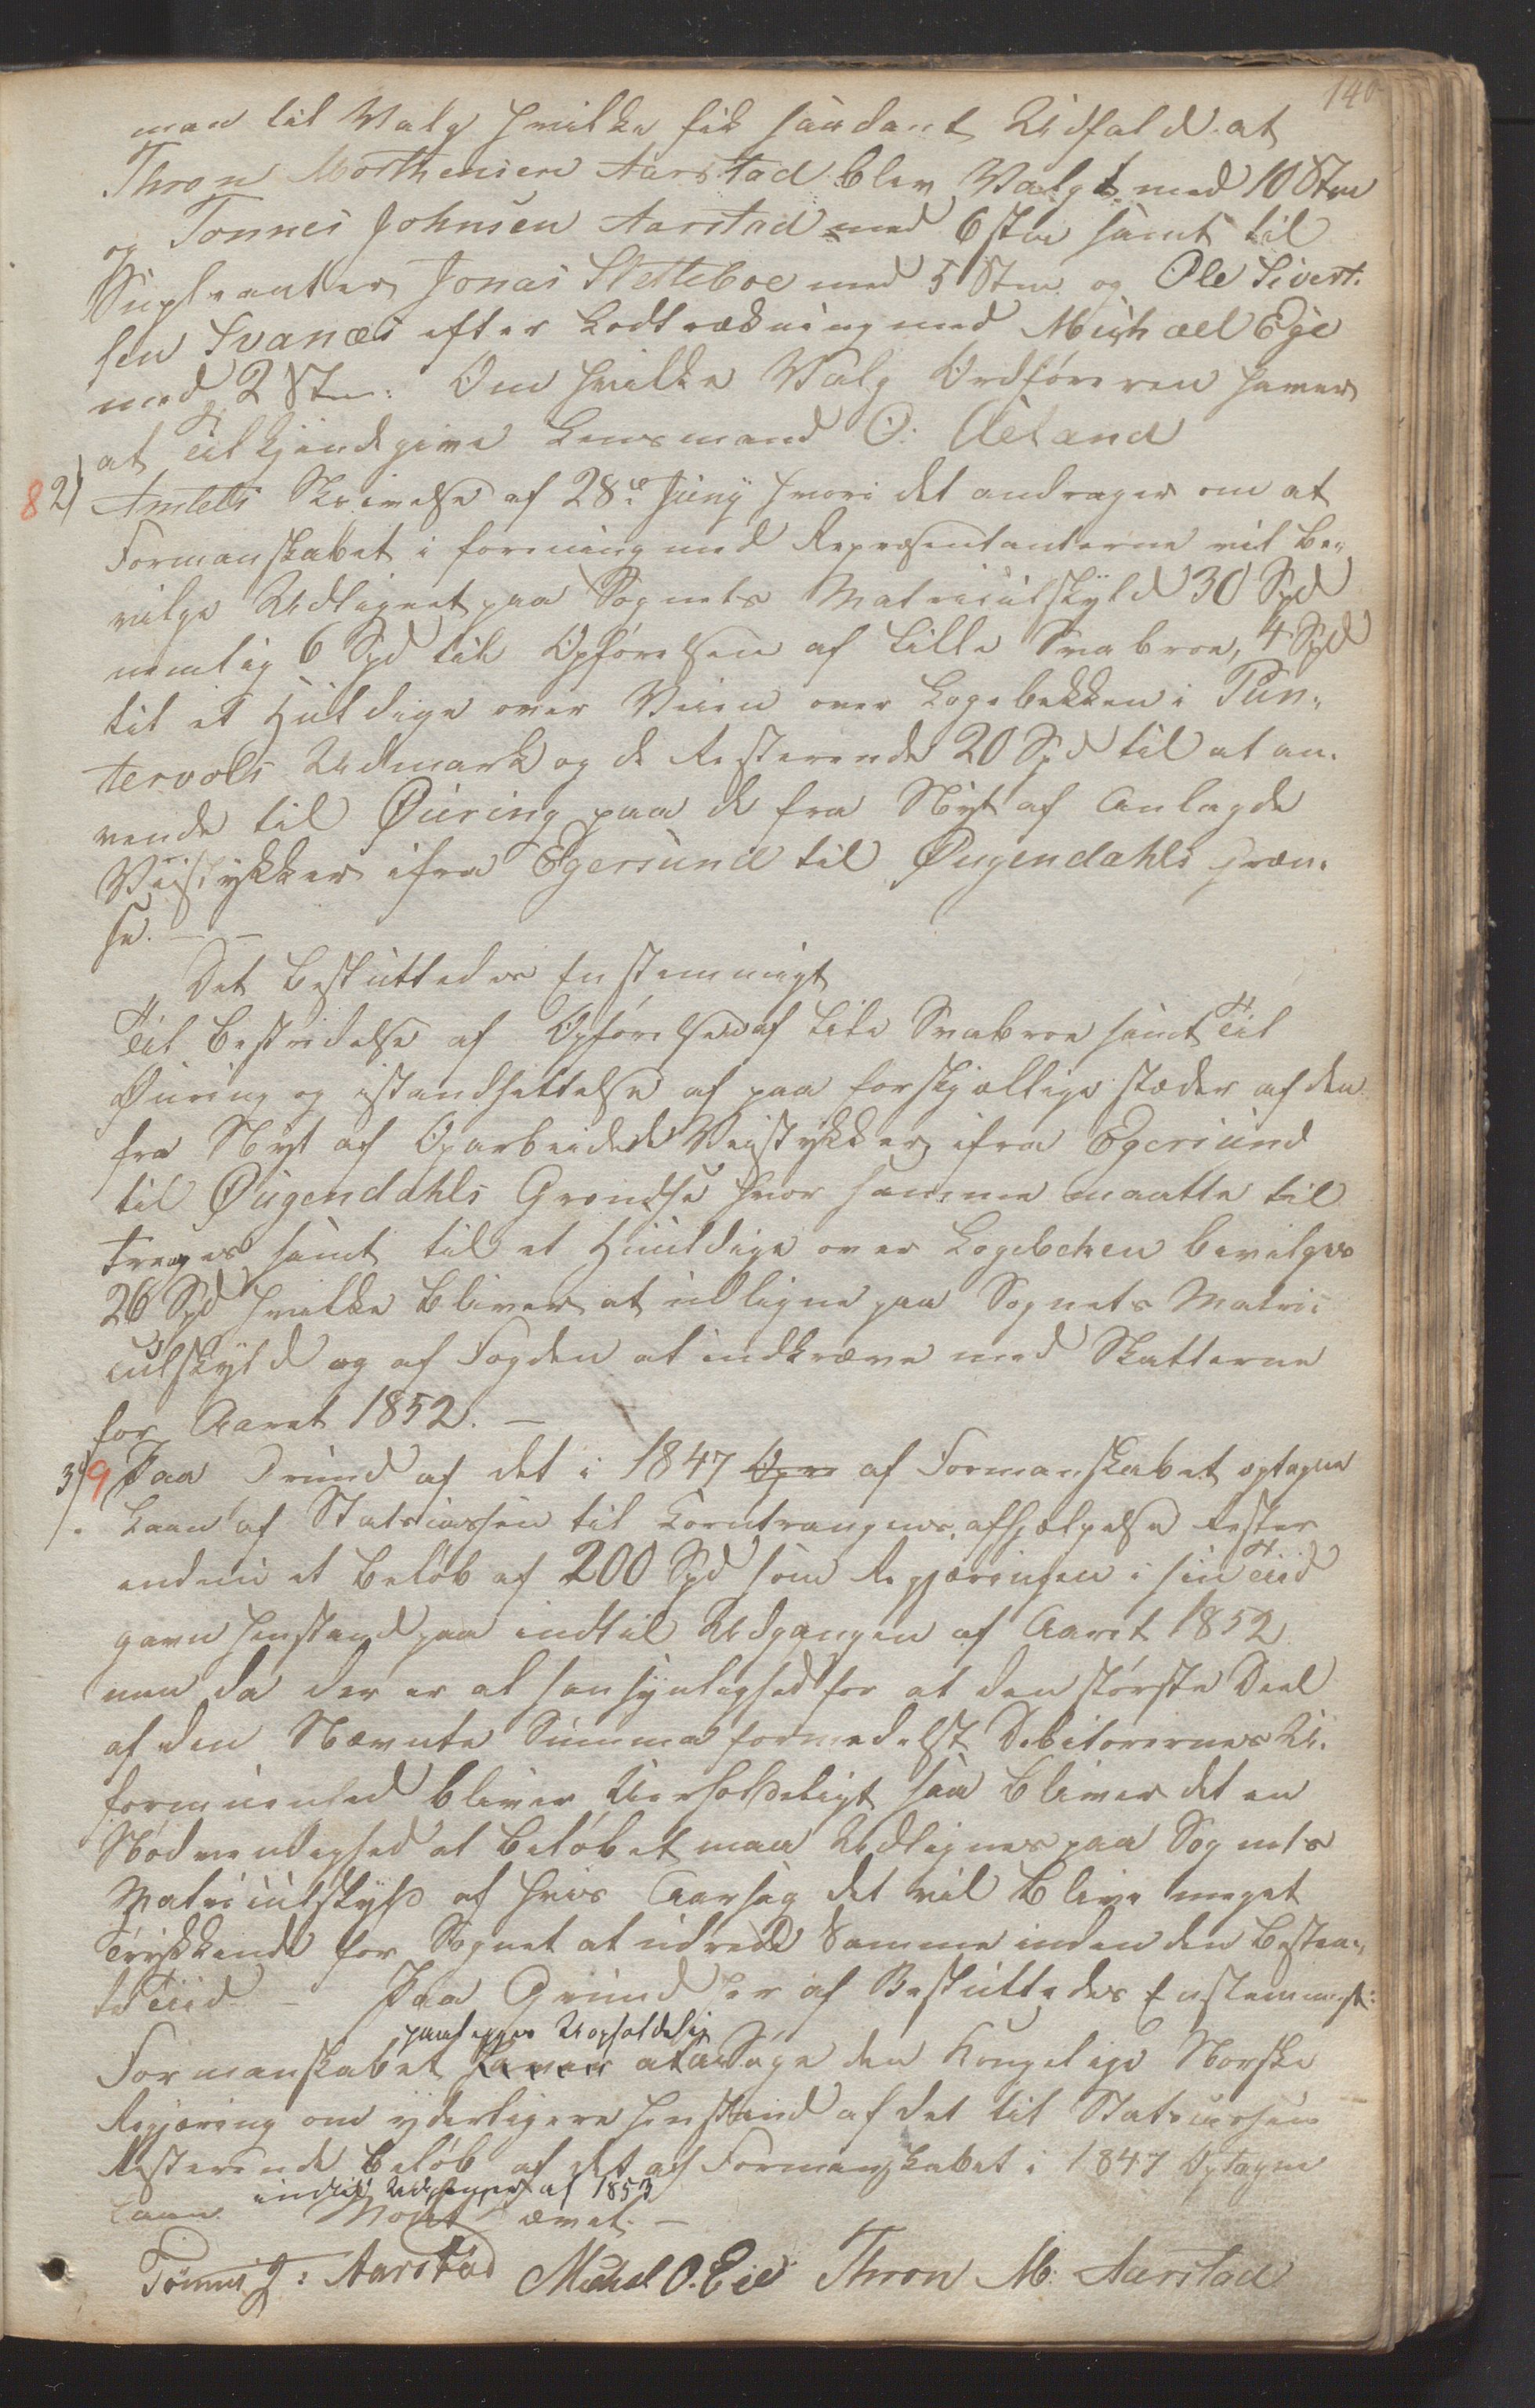 140
man til Valg hvilke fik saadant Udfald at
Thron Morthensen Aarstad blev Valgt med 10 Stm
og Tonnes Johnsen Aarstad med 6 stm samt til
Supleanter Jonas Sletteboe med 5 Stm og Ole Sivert-
sen Svanæs efter Lodtrækning med Michael Eje
med 2 Stm: Om hvilke Valg Ordføreren haver
at Tilkjendegive Lensmand O: Aeland
8 2) Amtets Skrivelse af 28de Juny hvori det andrager om at
Formanskabet i forening med Repræsentanterne vil be-
vilge Udlignet paa Sognets Matriculskyld 30 Spd
nemlig 6 Spd til Opførelsen af Lille Svabroe, 4 Spd
til et Huldige over Veien over Logebekken i Pun-
tervols Udmark og de Resterende 20 Spd til at an-
vende til Øuring paa de fra Nyt af Anlagde
Veistykker ifra Egersund til Øugendahls Græn-
se. —
Det besluttedes Enstemmigt
Til bestridelse af Opførelsen af Lile Svabroe samt Til
Øuring og istandsettelse af paa forskjællige stæder af den
fra Nyt af Oparbeidede Veistykker ifra Egersund
til Øugendahls Grændse hvor samme maatte til
trenges samt til et Huuldige over Logebeken bevilges
26 Spd hvilke bliver at udligne paa Sognets Matri-
culskyld og af Fogden at indkræve med Skatterne
for Aaret 1852. —
3) 9 Paa Grund af det i 1847 Opve af Formanskabet optagne
Laan af Statscassen til Korntrangens afhjælpelse Rester
endnu et beløb af 200 Spd som Regjæringen i sin Tiid
gaven henstand paa indtil Udgangen af Aaret 1852
men da der er al sansynlighed for at den største Deel
af den Nævnte Summa formedelst Debitorernes U-
formuenhed bliver Uerholdeligt saa bliver det en
Nødvendighed at beløbet maa Udlignes paa Sognets
Matriculskyld af hvis Aarsag det vil blive meget
Trykkende for Sognet at udrede Samme inden den bestem-
te Tiid — Paa Grund her af Besluttedes Enstemmigt:
paalegges Uopholdelig
Formanskabet haver at ansøge den Kongelige Norske
Regjæring om yderligere henstand af det til Statscassen
Resterende beløb af det af Formanskabet i 1847 Optagne
indtil Udgangen af 1853
Laan
Tønnes J: Aarstad Michel O. Eie Thron M: Aarstad